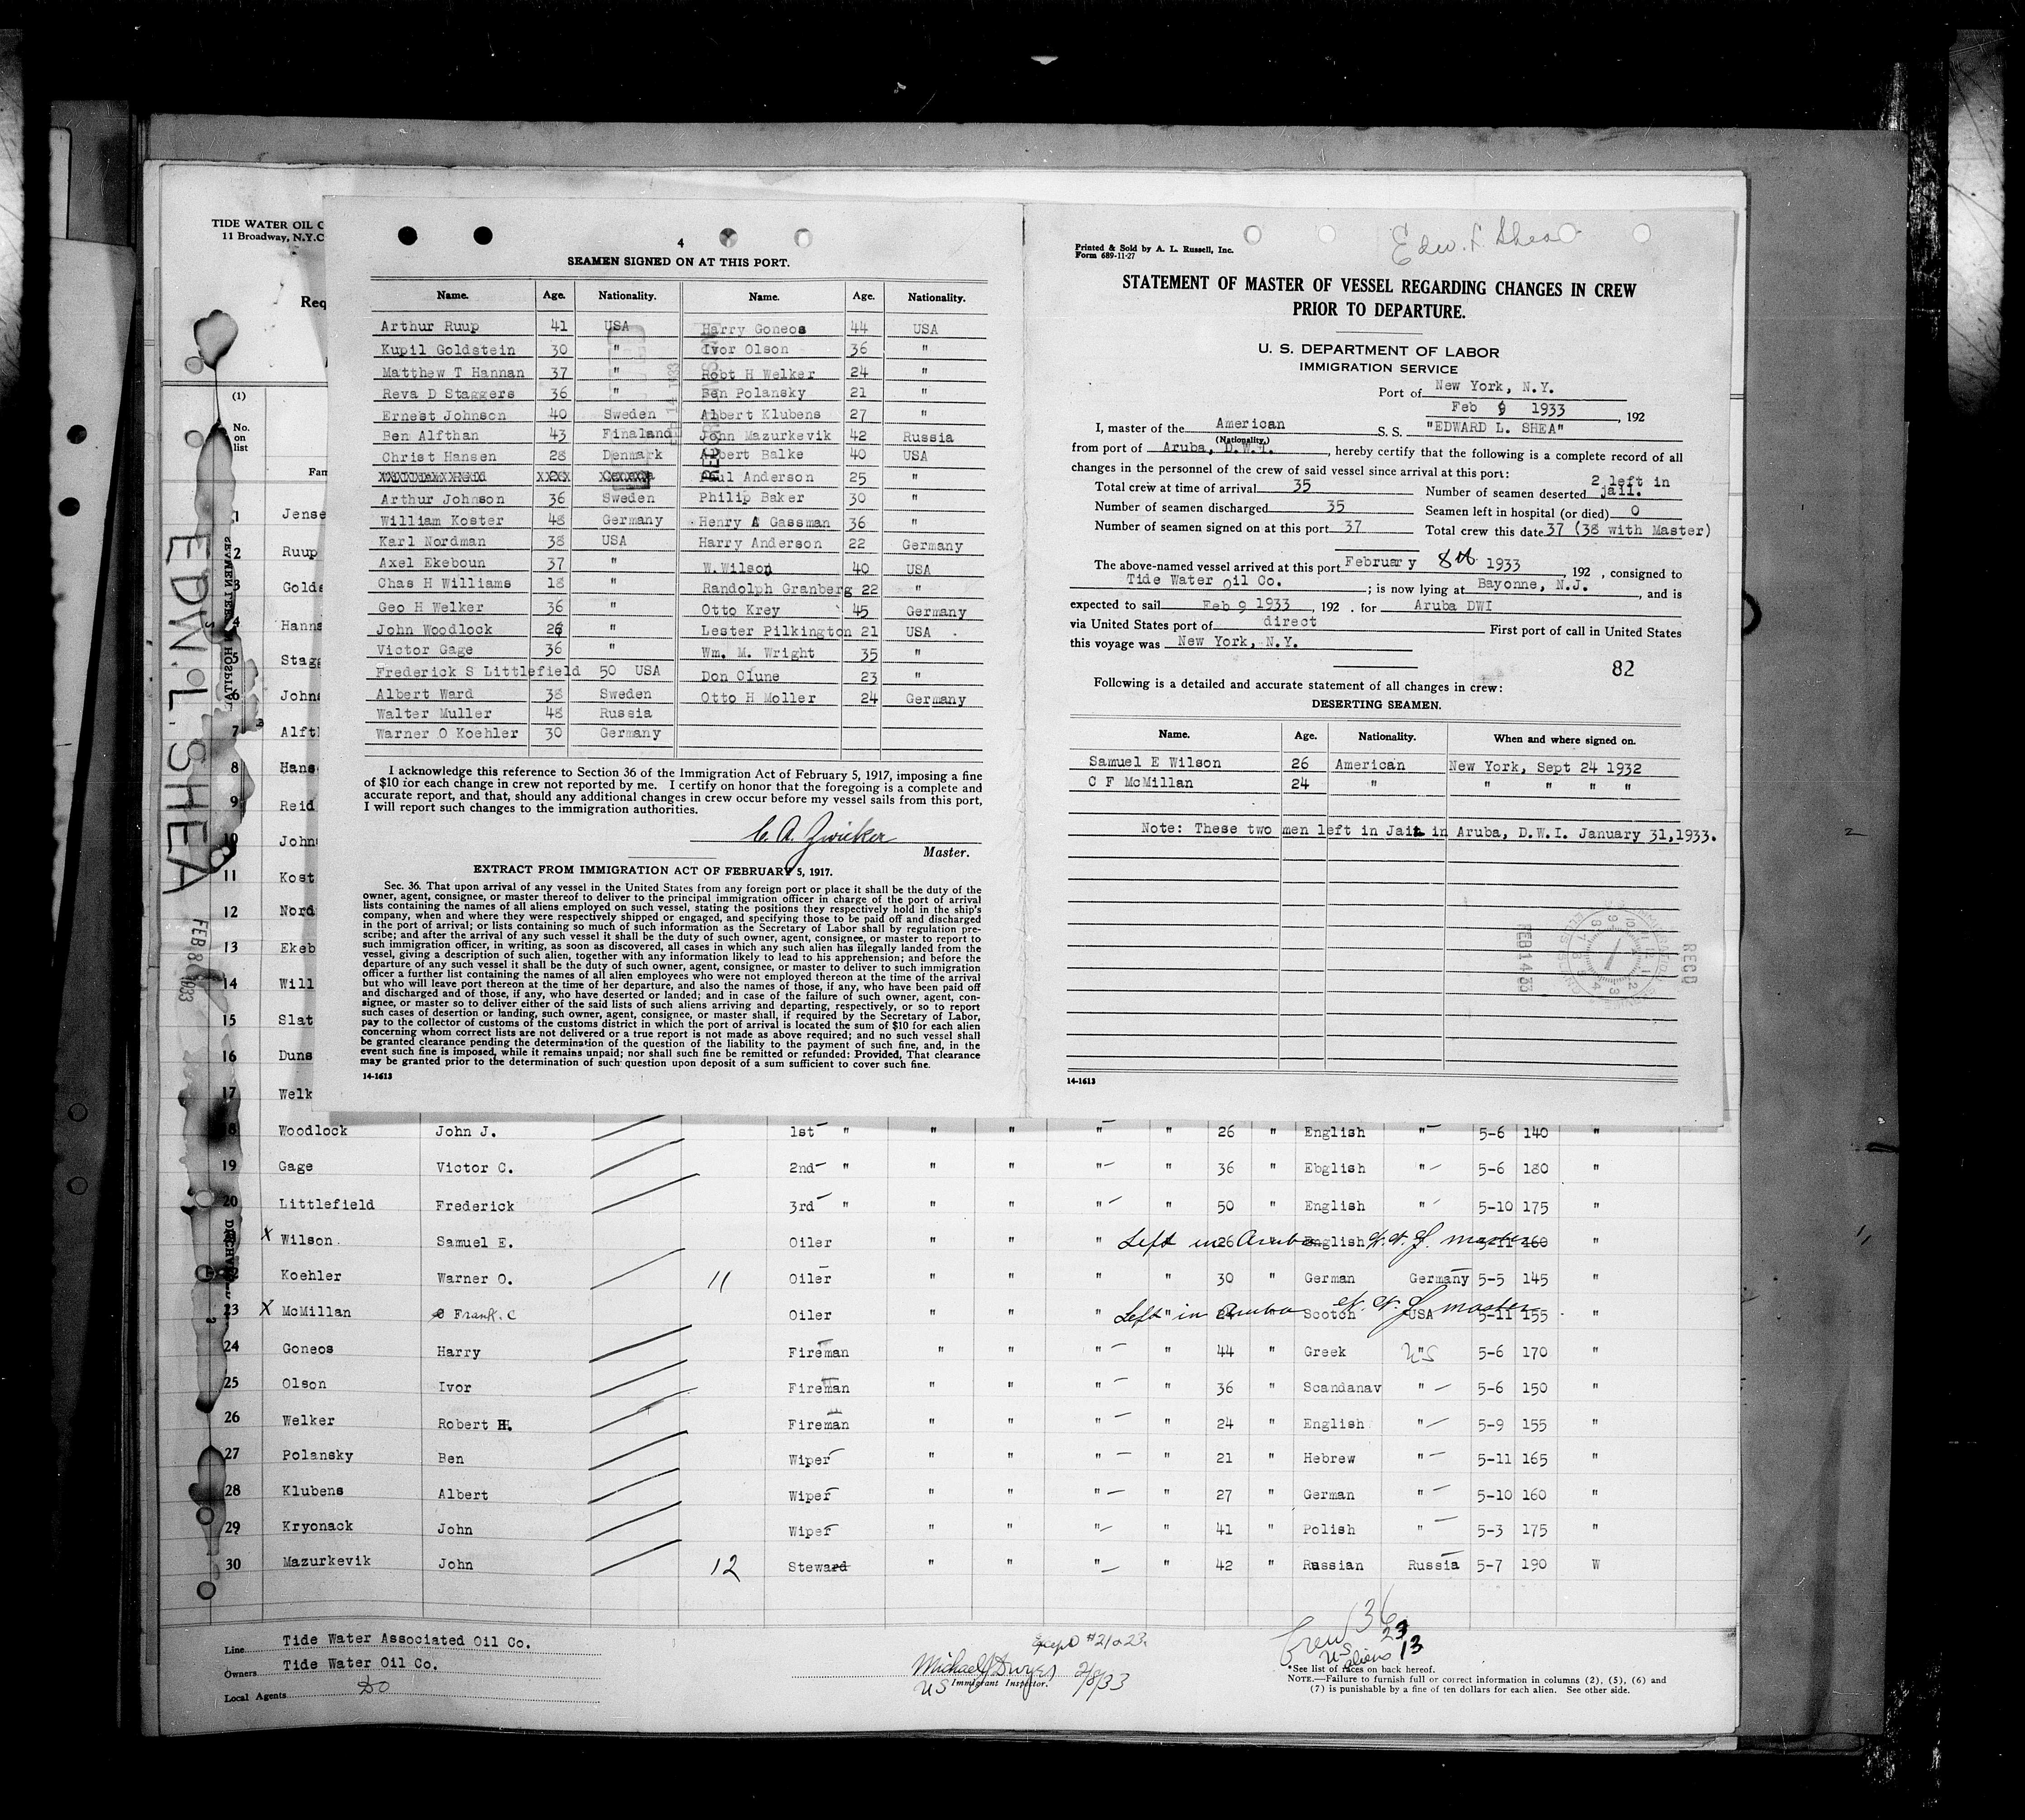 TIDE WATER OIL C
11 Broadway, N.Y.C
Req
(1)
No.
on
list
Fam
1 Jense
2 Ruup
3 Golds
4 Hanna
5 Stagg
6 Johns
7 Alfth
8 Hans
9 Reid
10 John
11 Kost
12 Nord
13 Ekeb
14 Will
15 Slat
16 Duns
17 Welk
EDW. L. SHEA
FEB 8 1933
4
SEAMEN SIGNED ON AT THIS PORT.
Name. Age. Nationality. Name. Age. Nationality.
Arthur Ruup 41 USA Harry Goneos 44 USA
Kupil Goldstein 30 " Ivor Olson 36 "
Matthew T Hannan 37 " Robt H Welker 24 "
Reva D Staggers 36 " Ben Polansky 21 "
Ernest Johnson 40 Sweden Albert Klubens 27 "
Ben Alfthan 43 Finaland John Mazurkevik 42 Russia
Christ Hansen 28 Denmark Albert Balke 40 USA
Paul Anderson 25 "
Arthur Johnson 36 Sweden Philip Baker 30 "
William Koster 48 Germany Henry A Gassman 36 "
Karl Nordman 38 USA Harry Anderson 22 Germany
Axel Ekeboun 37 " W. Wilson 40 USA
Chas H Williams 18 " Randolph Granberg 22 "
Geo H Welker 36 " Otto Krey 45 Germany
John Woodlock 26 " Lester Pilkington 21 USA .
Victor Gage 36 " Wm. M. Wright 35 "
Frederick S Littlefield 50 USA Don Clune 23 "
Albert Ward 38 Sweden Otto H Moller 24 Germany
Walter Muller 48 Russia
Warner O Koehler 30 Germany
I acknowledge this reference to Section 36 of the Immigration Act of February 5, 1917, imposing a fine
of $10 for each change in crew not reported by me. I certify on honor that the foregoing is a complete and
accurate report, and that, should any additional changes in crew occur before my vessel sails from this port,
I will report such changes to the immigration authorities.
C. A. Zwicker
Master.
EXTRACT FROM IMMIGRATION ACT OF FEBRUARY 5, 1917.
Sec. 36. That upon arrival of any vessel in the United States from any foreign port or place it shall be the duty of the
owner, agent, consignee, or master thereof to deliver to the principal immigration officer in charge of the port of arrival
lists containing the names of all aliens employed on such vessel, stating the positions they respectively hold in the ship's
company, when and where they were respectively shipped or engaged, and specifying those to be paid off and discharged
in the port of arrival; or lists containing so much of such information as the Secretary of Labor shall by regulation pre-
scribe; and after the arrival of any such vessel it shall be the duty of such owner, agent, consignee, or master to report to
such immigration officer, in writing, as soon as discovered, all cases in which any such alien has illegally landed from the
vessel, giving a description of such alien, together with any information likely to lead to his apprehension; and before the
departure of any such vessel it shall be the duty of such owner, agent, consignee, or master to deliver to such immigration
officer a further list containing the names of all alien employees who were not employed thereon at the time of the arrival
but who will leave port thereon at the time of her departure, and also the names of those, if any, who have been paid off
and discharged and of those, if any, who have deserted or landed; and in case of the failure of such owner, agent, con-
signee, or master so to deliver either of the said lists of such aliens arriving and departing, respectively, or so to report
such cases of desertion or landing, such owner, agent, consignee, or master shall, if required by the Secretary of Labor,
pay to the collector of customs of the customs district in which the port of arrival is located the sum of $10 for each alien
concerning whom correct lists are not delivered or a true report is not made as above required; and no such vessel shall
be granted clearance pending the determination of the question of the liability to the payment of such fine, and, in the
event such fine is imposed, while it remains unpaid; nor shall such fine be remitted or refunded: Provided, That clearance
may be granted prior to the determination of such question upon deposit of a sum sufficient to cover such fine.
14-1613
Printed & Sold by A. L. Russell, Inc.
Form 689-11-27
Edw. L Shea
STATEMENT OF MASTER OF VESSEL REGARDING CHANGES IN CREW
PRIOR TO DEPARTURE.
U. S. DEPARTMENT OF LABOR
IMMIGRATION SERVICE
Port of New York, N.Y.
Feb 9 1933, 192
I, master of the American S. S. "EDWARD L. SHEA"
(Nationality.)
from port of Aruba, D.W.I., hereby certify that the following is a complete record of all
changes in the personnel of the crew of said vessel since arrival at this port:
Total crew at time of arrival 35 Number of seamen deserted 2 left in jail.
Number of seamen discharged 35 Seamen left in hospital (or died) 0
Number of seamen signed on at this port 37 Total crew this date 37 (38 with Master)
The above-named vessel arrived at this port February 8th 1933, 192 , consigned to
Tide Water Oil Co. ; is now lying at Bayonne, N.J. , and is
expected to sail Feb 9 1933, 192 . for Aruba DWI
via United States port of direct First port of call in United States
this voyage was New York, N.Y.
82
Following is a detailed and accurate statement of all changes in crew:
DESERTING SEAMEN.
Name. Age. Nationality. When and where signed on.
Samuel E Wilson 26 American New York, Sept 24 1932
C F McMillan 24 " " " " "
Note: These two men left in Jail in Aruba, D.W.I. January 31,1933.
RECD
FEB 14 33
14-1613
18 Woodlock John J. 1st " " " " " 26 " English " 5-6 140 "
19 Gage Victor C. 2nd " " " " " 36 " Ebglish " 5-6 180 "
20 Littlefield Frederick 3rd " " " " " 50 " English " 5-10 175 "
X Wilson. Samuel E. Oiler " " Left in Aruba 26 English master 5-11 160 "
Koehler Warner O. 11 Oiler " " " " 30 " German Germany 5-5 145 "
23 X McMillan Frank. C Oiler " " " Left in Aruba Scotch USA master 5-11 155 "
24 Goneos Harry Fireman " " " " 44 " Greek US 5-6 170 "
25 Olson Ivor Fireman " " " " 36 " Scandanav " 5-6 150 "
26 Welker Robert H. Fireman " " " " 24 " English " 5-9 155 "
27 Polansky Ben Wiper " " " " 21 " Hebrew " 5-11 165 "
28 Klubens Albert Wiper " " " " 27 " German " 5-10 160 "
29 Kryonack John Wiper " " " " 41 " Polish " 5-3 175 "
30 Mazurkevik John 12 Steward " " " " 42 " Russian Russia 5-7 190 W
Line Tide Water Associated Oil Co.
Owners Tide Water Oil Co.
Local Agents Do
Except #21 & 23.
Michael J Dwyer 2/8/33
US Immigrant Inspector.
Crew 36
US 23
aliens 13
*See list of races on back hereof.
NOTE.—Failure to furnish full or correct information in columns (2), (5), (6) and
(7) is punishable by a fine of ten dollars for each alien. See other side.